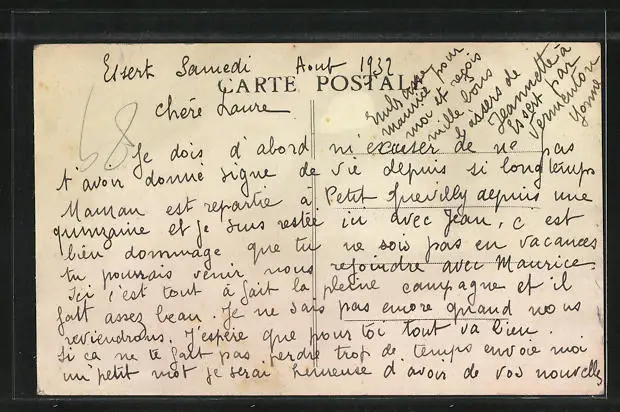 Essert Samedi Aout 1932
CARTE POSTALE
chère Laure
Je dois d'abord m'excuser de ne pas
t'avoir donné signe de vie depuis si longtemps
Maman est repartie à Petit Quevilly depuis une
quinzaine et je suis restée ici avec Jean, c est
bien dommage que tu ne sois pas en vacances
tu pourrais venir nous rejoindre avec Maurice.
Ici c'est tout à fait la pleine campagne et il
fait assez beau. Je ne sais pas encore quand nous
reviendrons. J'espère que pour toi tout va bien.
Si ca ne te fait pas perdre trop de temps envoie moi
un petit mot je serai heureuse d'avoir de vos nouvelles
Embrasse
Maurice pour
moi et reçois
mille bons
baisers de
Jeannette à
Essert par
Vermenton
Yonne
68